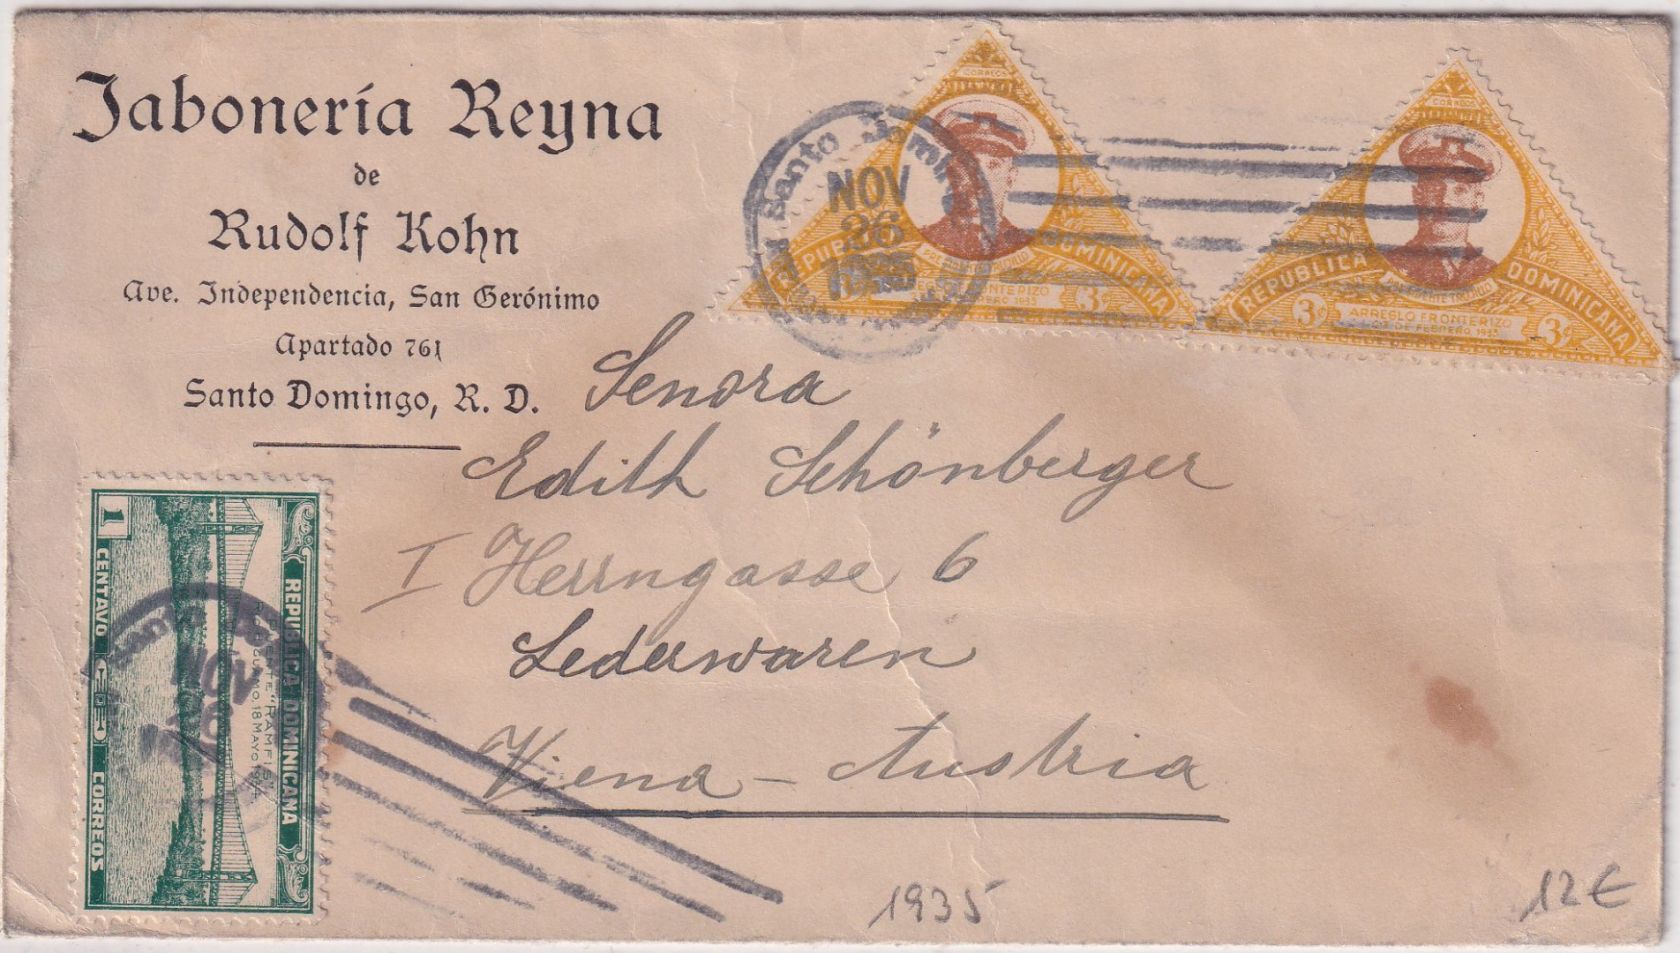 Jabonería Reyna
de
Rudolf Kohn
Ave. Independencia, San Gerónimo
Apartado 761
Santo Domingo, R. D.
CORREOS
REPUBLICA DOMINICANA
3¢
ARREGLO FRONTERIZO
Santo Domingo
NOV
26
1935
CORREOS
REPUBLICA DOMINICANA
PRESIDENTE TRUJILLO
3¢ ARREGLO FRONTERIZO 3¢
DE FEBRERO 1935
Senora
Edith Schönberger
I Herrngasse 6
Lederwaren
Viena - Austria
REPUBLICA DOMINICANA
PUENTE "RAMFIS"
18 MAYO 1934
1 CENTAVO CORREOS
NOV
26
1935
12€